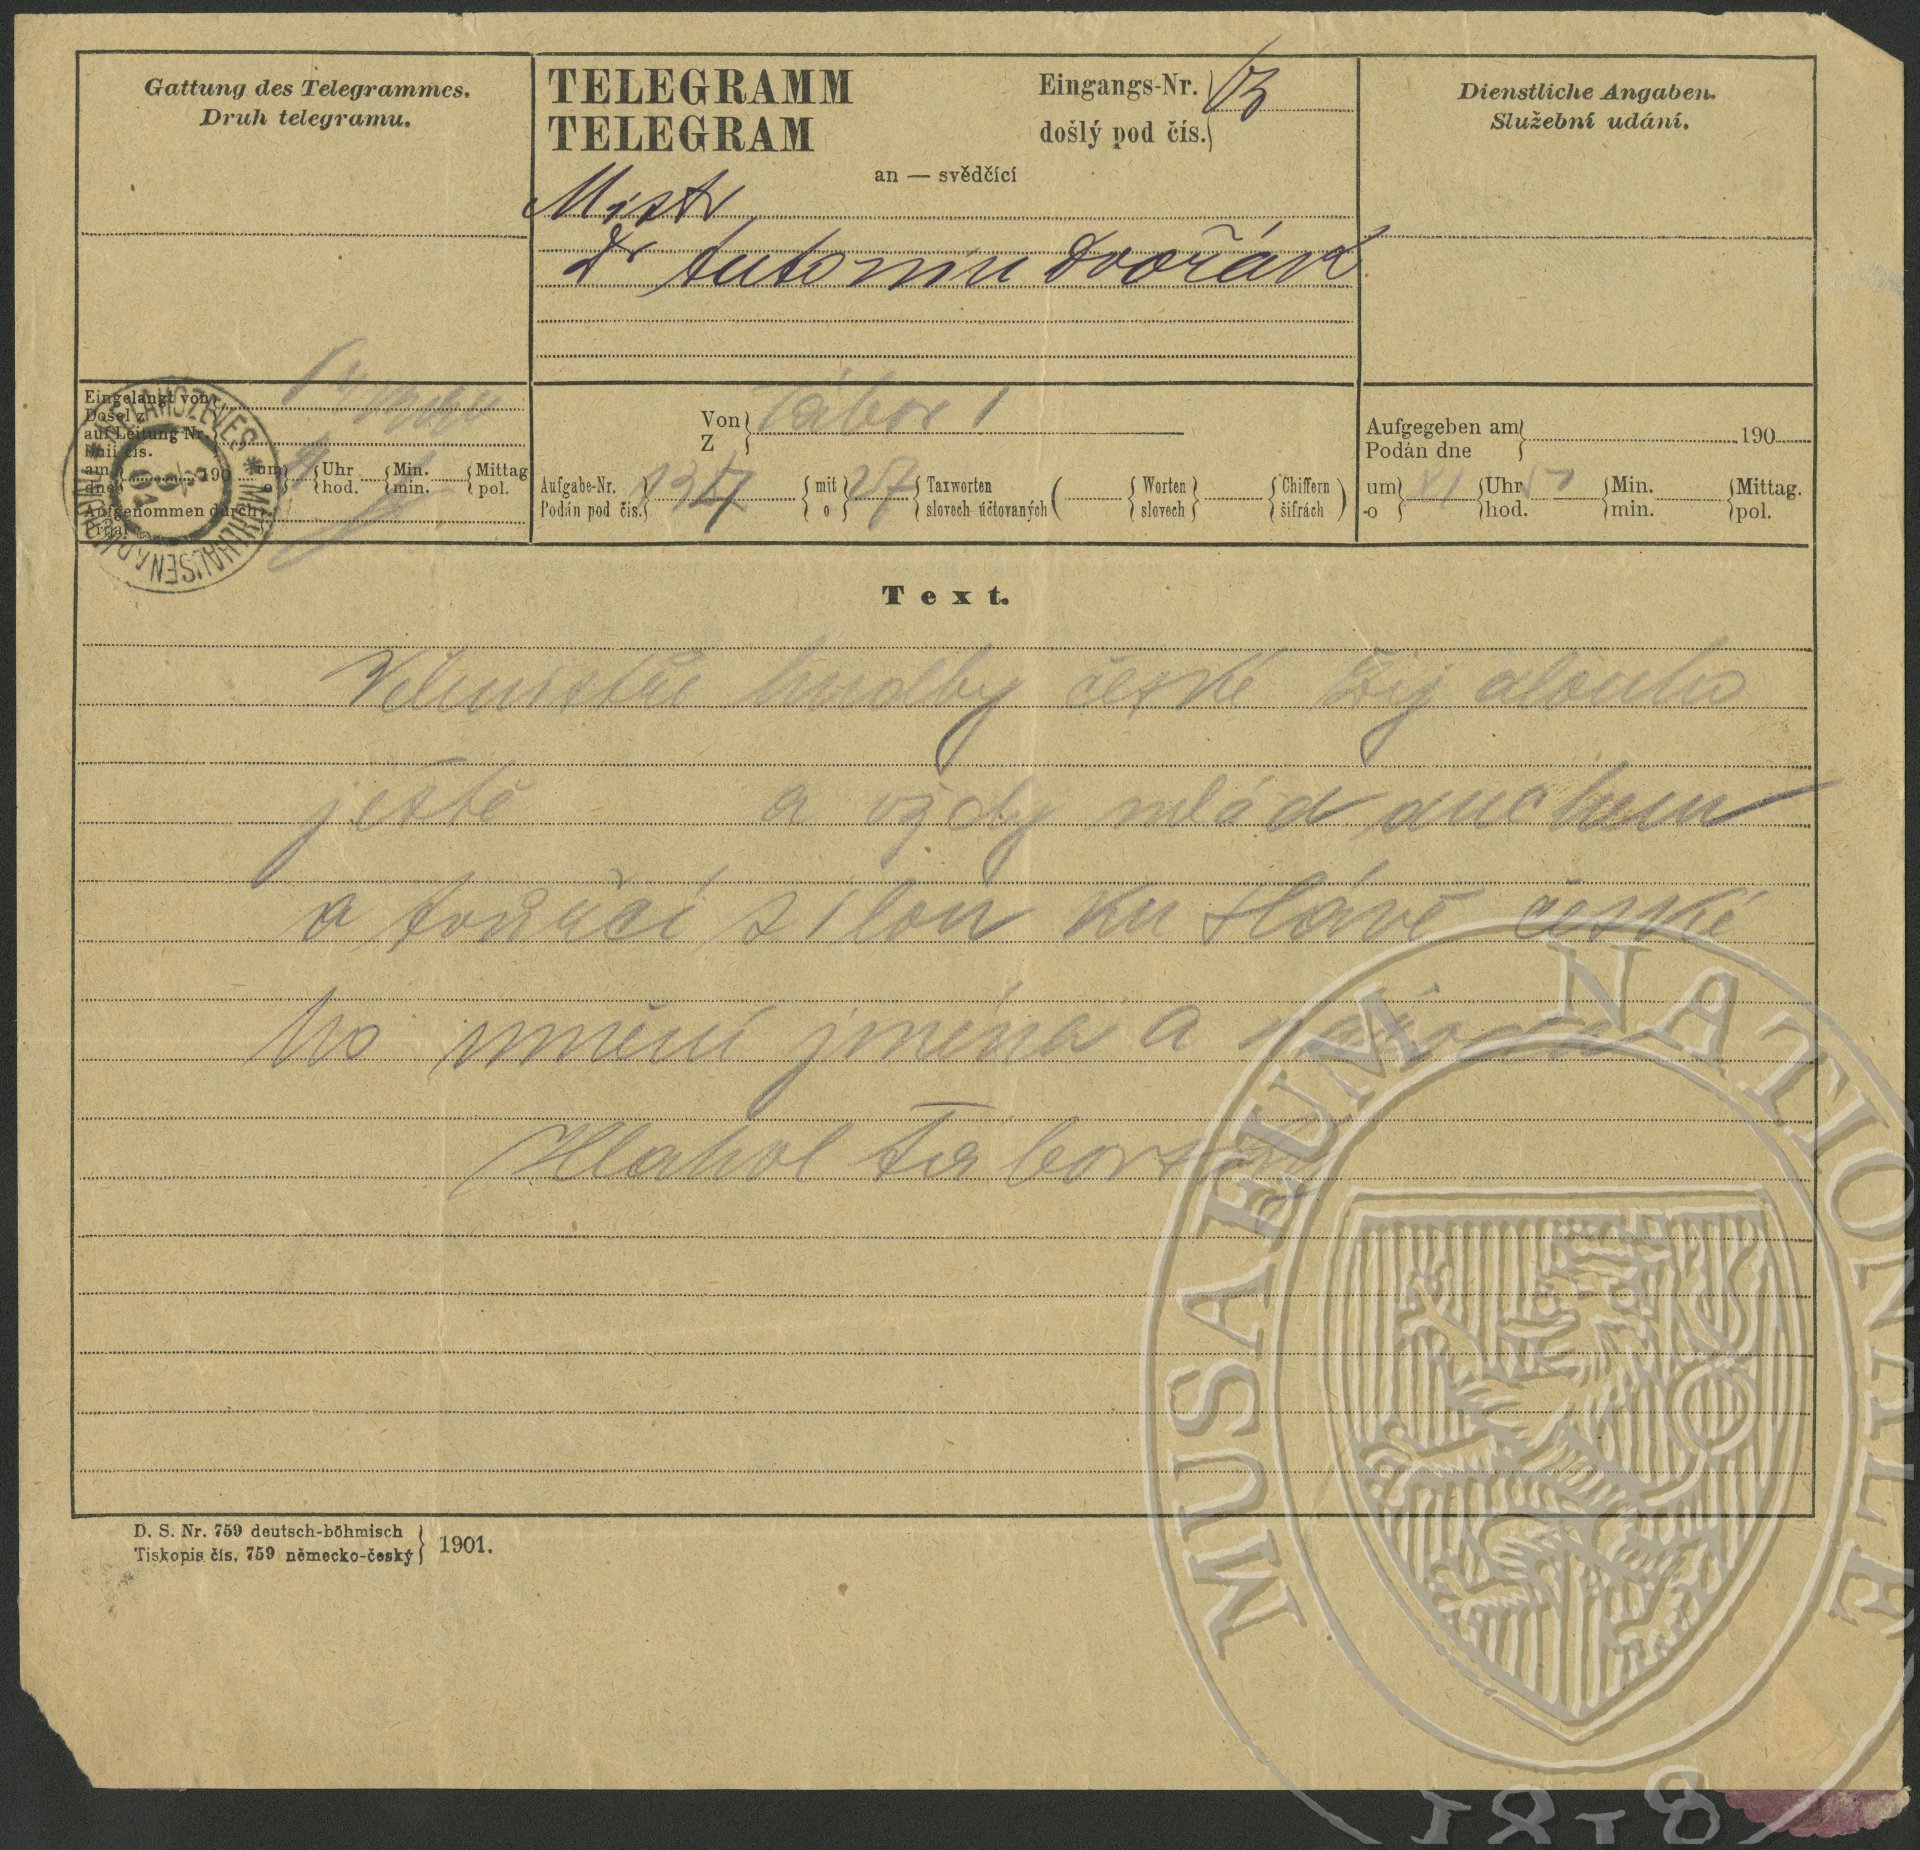 Gattung des Telegrammes.
Druh telegramu.
TELEGRAMM
TELEGRAM
Eingangs-Nr.
došlý pod čís.
13
an — svědčící
Mistr
Dr Antonin Dvořák
Dienstliche Angaben.
Služební udání.
Eingelangt von
Došel z
auf Leitung Nr.
linii čís.
am
dne
190
um
o
Uhr
hod.
Min.
min.
Mittag
pol.
Aufgenommen durch
Přijal
NELAHOZEVES * MÜHLHAUSEN
Von
Z
Tábor 1
Aufgabe-Nr.
Podán pod čís.
mit
o
27
Taxworten
slovech účtovaných
(
Worten
slovech
Chiffern
šifrách
)
Aufgegeben am
Podán dne
190
um
o
XI
Uhr
hod.
50
Min.
min.
Mittag.
pol.
Text.
Velmistře hudby české žij dlouho
ještě a vždy mlád duchem
a tvůrčí silou ku slávě české
ho umění jména a národa
Hlahol Táborský
D. S. Nr. 759 deutsch-böhmisch
Tiskopis čís. 759 německo-český
1901.
MUSAEUM NATIONALE
1818